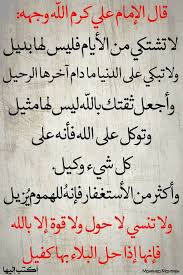 قال الإمام علي كرم الله وجهه:
لا تشتكي من الأيام فليس لها بديل
ولا تبكي على الدنيا ما دام آخرها الرحيل
وأجعل ثقتك بالله ليس لها مثيل
وتوكل على الله فأنه على
كل شيء وكيل.
وأكثر من الأستغفار فإنه للهموم يُزيل
ولا تنسي لا حول ولا قوة إلا بالله
فإنها إذا حل البلاء بها كفيل
اكتب إليها